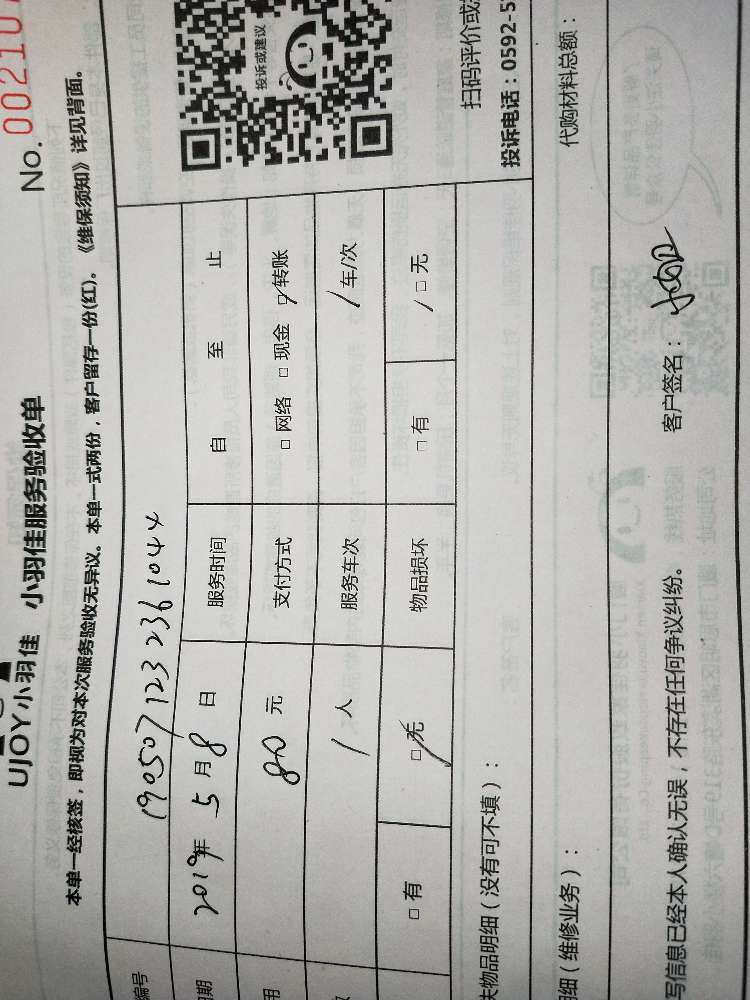 No. 002107
UJOY小羽佳 小羽佳服务验收单
本单一经核签，即视为对本次服务验收无异议。本单一式两份，客户留存一份(红)。《维保须知》详见背面。
投诉或建议
扫码评价或
投诉电话：0592-5
编号 1905071232361044
日期 2019年 5月8日 服务时间 自 至 止
用 80元 支付方式 □网络 □现金 ☑转账
1人 服务车次 1车/次
□有 ☑无 物品损坏 □有 □无
失物品明细（没有可不填）：
细（维修业务）： 代购材料总额：
写信息已经本人确认无误，不存在任何争议纠纷。 客户签名：